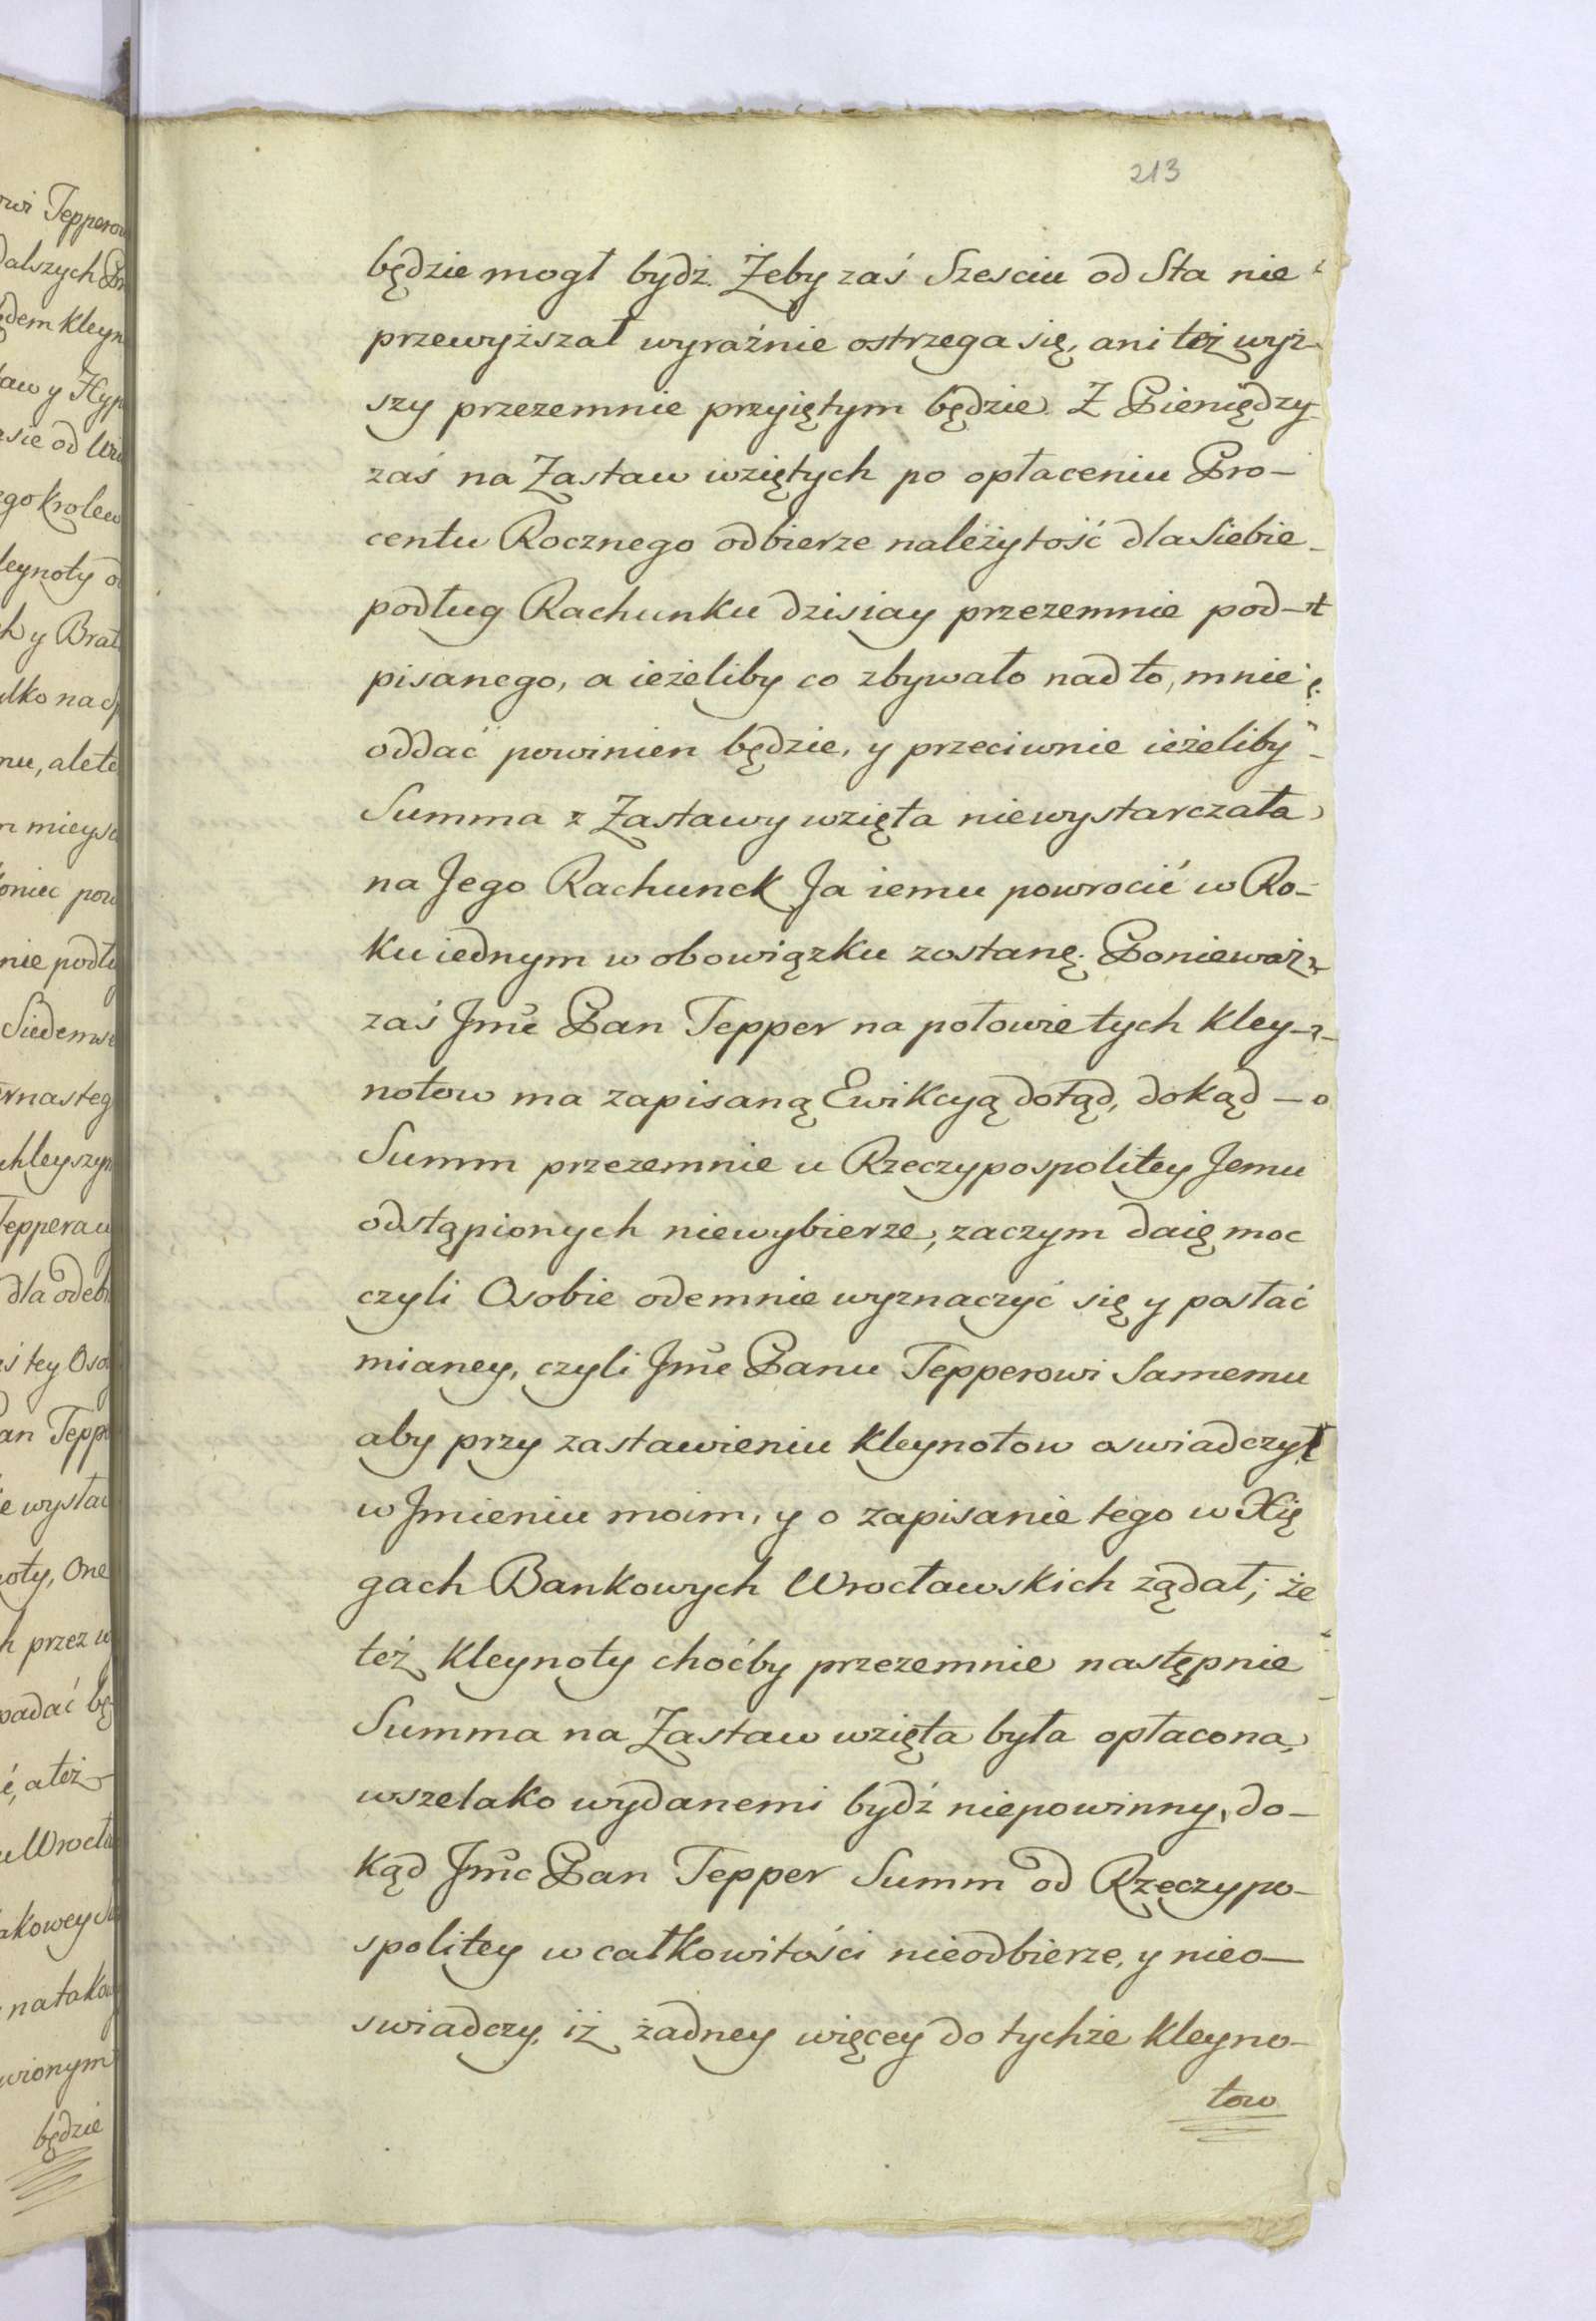 213
będzie mogł bydź. Żeby zaś Szesciu od Sta nie
przewyższał wyraźnie ostrzega się, ani też wyż-
szy przezemnie przyiętym będzie. Z Pieniędzy
zaś na Zastaw wziętych po opłaceniu Pro-
centu Rocznego odbierze należytość dla Siebie
podług Rachunku dzisiay przezemnie pod-
pisanego, a ieżeliby co zbywało nad to, mnie
oddać powinien będzie, y przeciwnie ieżeliby
Summa z Zastawy wzięta niewystarczała
na Jego Rachunek Ja iemu powrocić w Ro-
ku iednym w obowiązku zostanę. Ponieważ
zaś Jmć Pan Tepper na połowie tych Kley-
notow ma zapisaną Ewikcyą dotąd, dokąd
Summ przezemnie u Rzeczypospolitey Jemu
odstąpionych niewybierze, zaczym daię moc
czyli Osobie odemnie wyznaczyć się y posłać
mianey, czyli Jmć Panu Tepperowi Samemu
aby przy zastawieniu Kleynotow oswiadczył
w Jmieniu moim, y o zapisanie tego w Xię
gach Bankowych Wrocławskich żądał, że
też Kleynoty choćby przezemnie następnie
Summa na Zastaw wzięta była opłacona,
wszelako wydanemi bydź niepowinny, do-
kąd Jmć Pan Tepper Summ od Rzeczypo-
spolitey w całkowitości nieodbierze, y nieo-
swiadczy, iż żadney więcey do tychże Kleyno-
tow